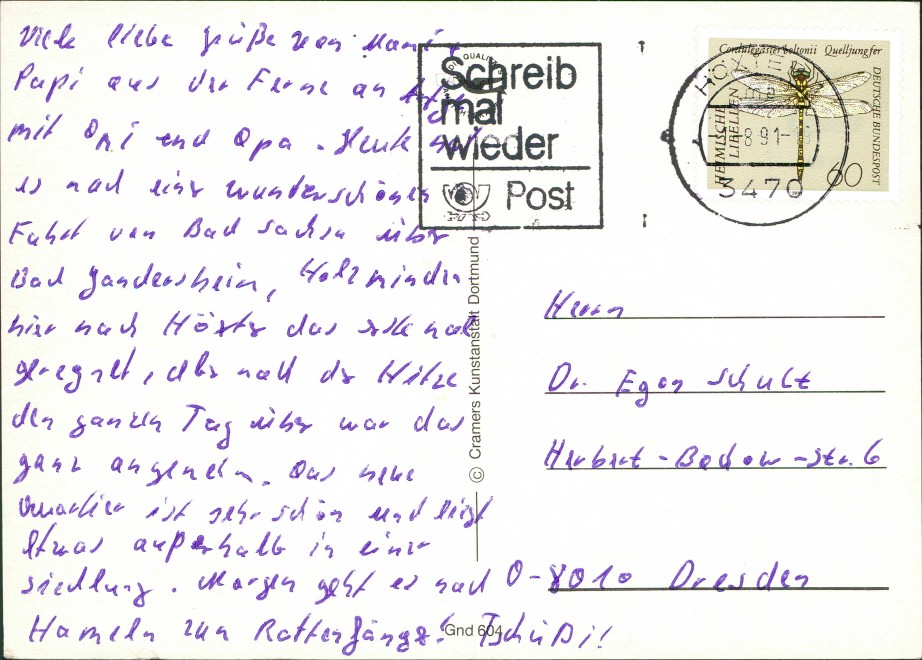 Viele liebe Grüße von Mami
Papi aus der Ferne an
mit Omi und Opa. Heute
es nach einer wunderschönen
Fahrt von Bad Sachsa über
Bad Gandersheim, Holzminden
hier nach Höxter das erste mal
geregnet, aber nach der Hitze
den ganzen Tag über war das
ganz angenehm. Das neue
Quartier ist sehr schön und liegt
etwas außerhalb in einer
Siedlung. Morgen geht es nach
Hameln zum Rattenfänger! Tschüßi!
Schreib
mal
wieder
Post
HÖXTER
8.91-
3470
Cordulegaster boltonii Quelljungfer
HEIMISCHE
LIBELLEN
DEUTSCHE BUNDESPOST
60
© Cramers Kunstanstalt Dortmund
Gnd 604
Herrn
Dr. Egon Schulz
Herbert-Bochow-Str. 6
O-8010 Dresden